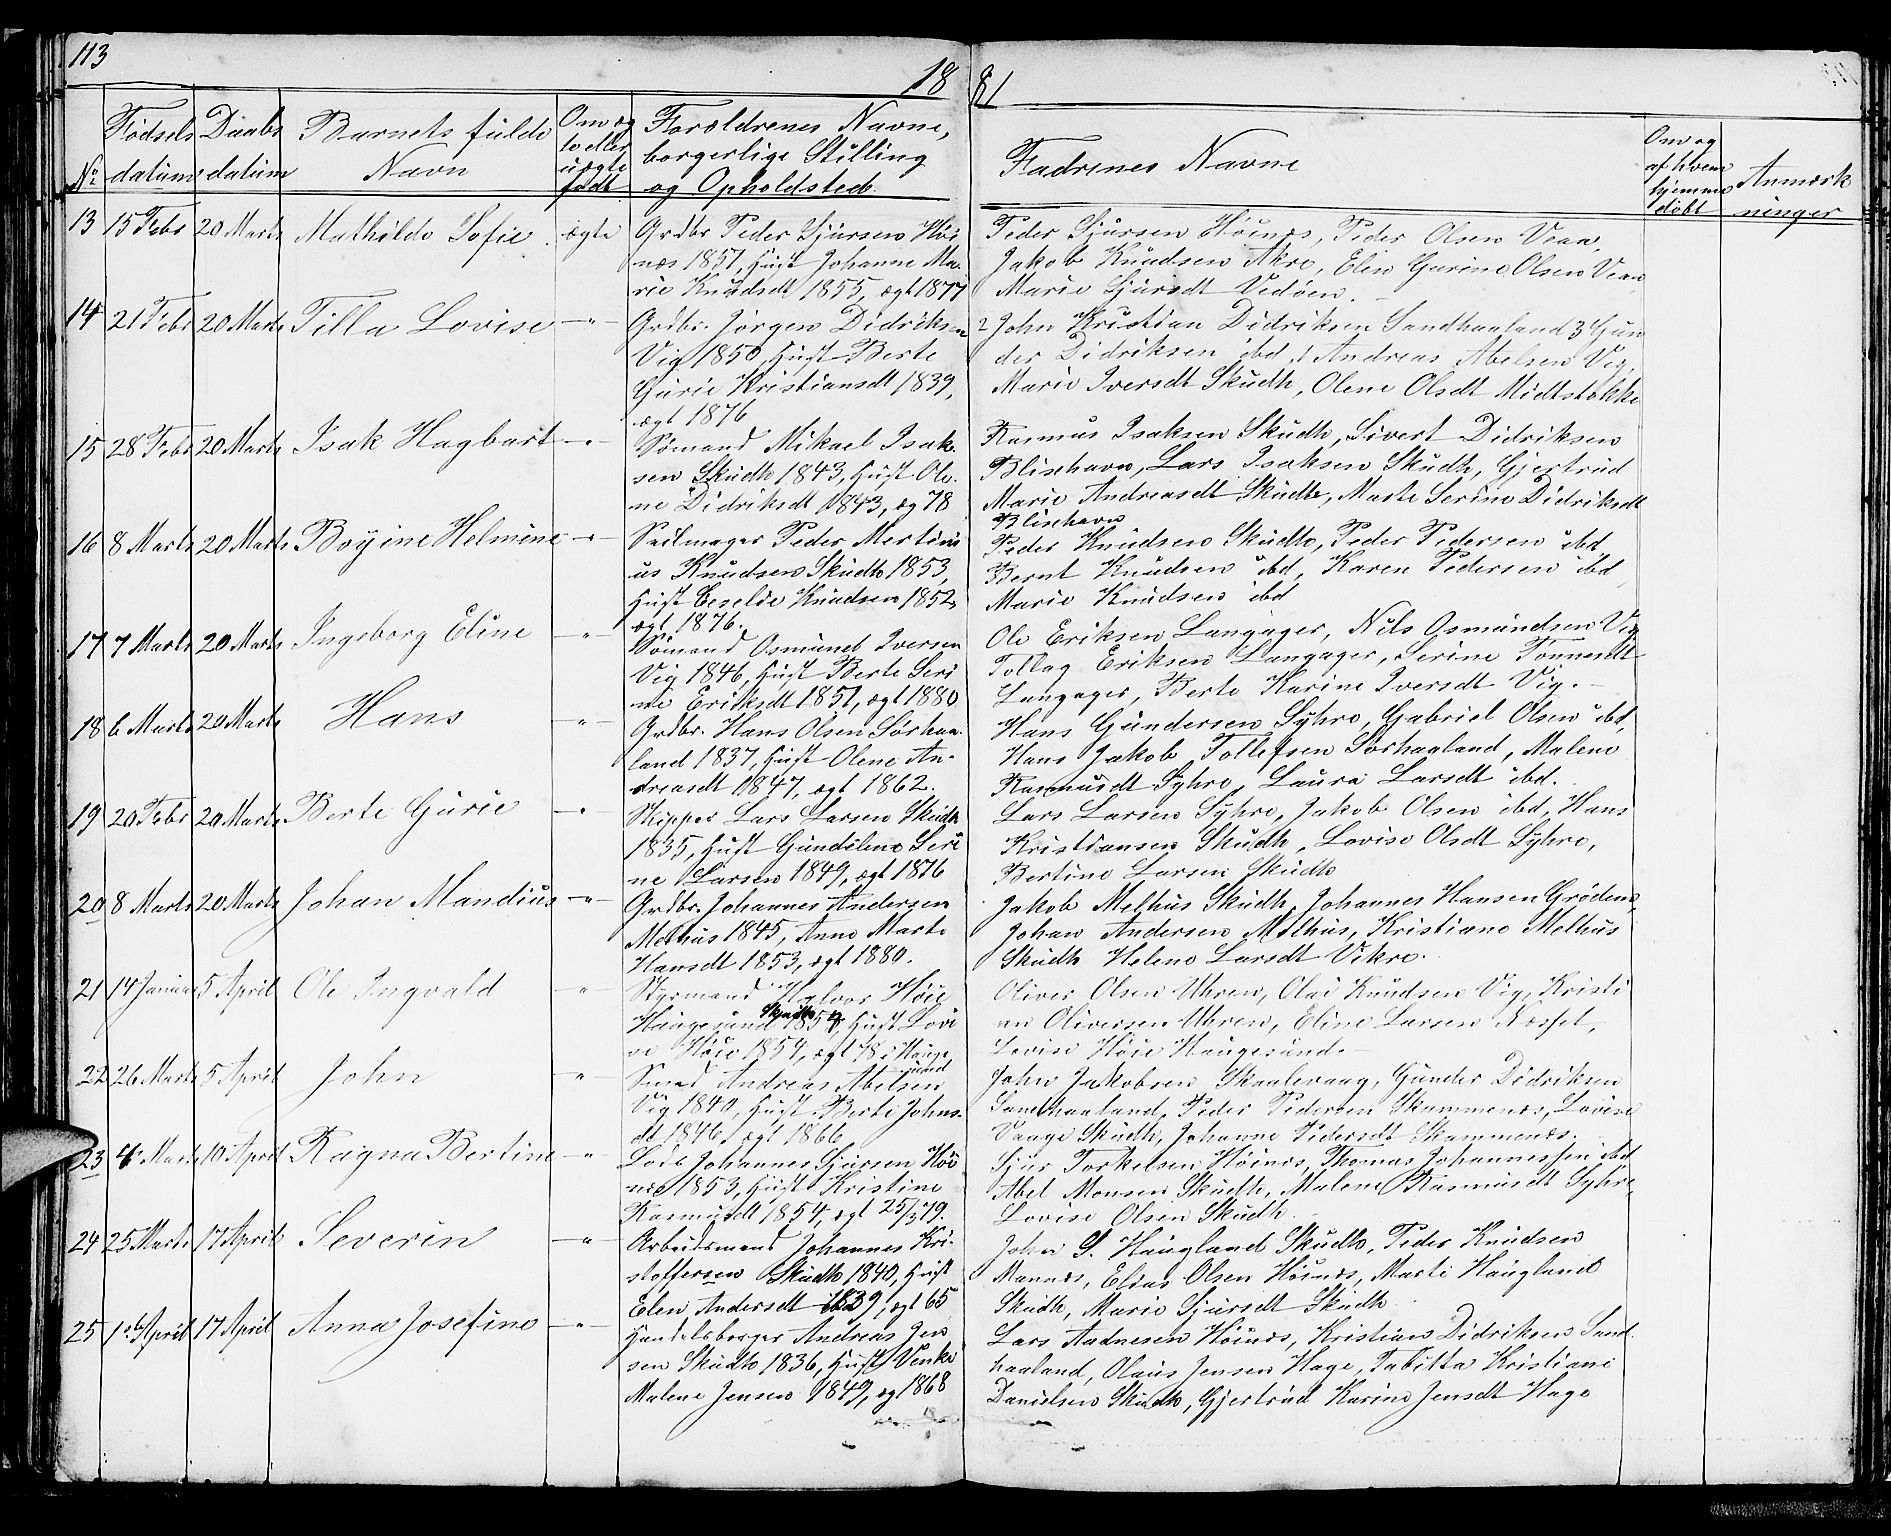 113
18 81
No Fødsels Daabs Barnets fulde Om æg Forældrenes Navne, Fadrenes Navne Om og
datum datum Navn te eller borgerlige Stilling af hvem Anmærk
uægte og Opholdsted. hjemme ninger
født døbt
13 15 Febr 20 Marts Mathilde Sofie ægte Grdbr Peder Sjursen Høi
næs 1851, Hust Johanne Ma-
rie Knudsdt 1855, ægt 1877
Peder Sjursen Høinæs, Peder Olsen Veaa,
Jakob Knudsen Akre, Elen Gurine Olsen Veaa
Marie Sjursdt Vedøen.
14 21 Febr 20 Marts Tilla Lovise —"— Grdbr. Jørgen Didriksen
Vig 1850, Hust Berte
Gurie Kristiansdt 1839,
ægt 1876
2 John Kristian Didriksen Sandhaaland 3 Gun
der Didriksen ibd, 1 Andreas Abelsen Vig,
Marie Iversdt Skudh, Olene Olsdt Midtstokke
15 28 Febr 20 Marts Isak Hagbart —"— Sømand Mikael Isak-
sen Skudh 1843, Hust Ole-
ne Didriksdt 1843, æg 78
Rasmus Isaksen Skudh, Sivert Didriksen
Blisehavn, Lars Isaksen Skudh, Gjertrud
Marie Andreasdt Skudh, Marte Serine Didriksdt
Blisehavn
16 8 Marts 20 Marts Boyine Helmine —"— Seilmager Peder Martini
us Knudsen Skudh 1853,
Hust Ceselie Knudsen 1852,
ægt 1876.
Peder Knudsen Skudh, Peder Pedersen ibd
Bernt Knudsen ibd, Karen Pedersen ibd
Marie Knudsen ibd
17 7 Marts 20 Marts Ingeborg Eline —"— Sømand Osmund Iversen
Vig 1846, Hust Berte Seri
ne Eriksdt 1851, ægt 1880
Ole Eriksen Langager, Nils Osmundsen Vig
Tollag Eriksen Langager, Serine Tønnesdt
Langager, Berte Karine Iversdt Vig.
18 6 Marts 20 Marts Hans —"— Grdbr. Hans Olsen Sørhaa-
land 1837, Hust Olene An-
dreasdt 1847, ægt 1862.
Hans Gundersen Syhre, Gabriel Olsen ibd,
Hans Jakob Tollefsen Sørhaaland, Malene
Rasmusdt Syhre, Laura Larsdt ibd.
19 20 Febr 20 Marts Berte Gurie —"— Skipper Lars Larsen Skudh
1835, Hust Gundeline Seri
ne Larsen 1849, ægt 1876
Lars Larsen Syhre, Jakob Olsen ibd, Hans
Kristiansen Skudh, Lovise Olsdt Syhre,
Bertine Larsen Skudh
20 8 Marts 20 Marts Johan Mandius —"— Grdbr. Johannes Andersen
Melhus 1845, Anne Marte
Hansdt 1853, ægt 1880.
Jakob Melhus Skudh, Johannes Hansen Grødem,
Johan Andersen Melhus, Kristiane Melhus
Skudh Helene Larsdt Vikre.
21 14 Januar 5 April Ole Ingvald —"— Styrmand Halvor Høie
Skudh
Haugesund 1854, Hust Lovi
se Høie 1854, ægt 78 i Hauge
sund
Oliver Olsen Uhren, Olai Knudsen Vig, Kristi
an Oliversen Uhren, Eline Larsen Næsset,
Lovise Høie Haugesund.
22 26 Marts 5 April John —"— Smed Andreas Abelsen
Vig 1840, Hust Berte Johns-
dt 1846, ægt 1866
John Jakobsen Skaalevaag, Gunder Didriksen
Sandhaaland, Peder Pedersen Skammenæs, Lovise
Vaage Skudh, Johanne Pedersdt Skammenæs.
23 4 Marts 10 April Ragna Bertine —"— Lods Johannes Sjursen Høi
næs 1853, Hust Kristine
Rasmusdt 1854, ægt 25/3 79.
Sjur Torkelsen Høinæs, Thomas Johannessen ibd
Abel Monsen Skudh, Malene Rasmusdt Syhre,
Lovise Olsen Skudh
24 25 Marts 17 April Severin —"— Arbeidsmand Johannes Kri-
stoffersen Skudh 1840, Hust
Elen Andersdt 1839, ægt 65
John S. Haugland Skudh, Peder Knudsen
Mannes, Elias Olsen Høinæs, Marte Haugland
Skudh, Marie Sjursdt Skudh
25 1 April 17 April Anna Josefine —"— Handelsborger Andreas Jen
sen Skudh 1836, Hust Venke
Malene Jensen 1849, æg 1868
Lars Aadnesen Høinæs, Kristian Didriksen Sand-
haaland, Olaus Jensen Hage, Tabitta Kristiane
Danielsen Skudh, Gjertrud Karine Jensdt Hage